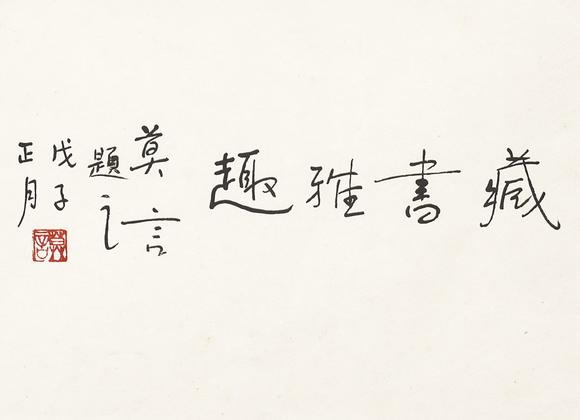 藏書雅趣
莫言
題之
戊子
正月
莫言